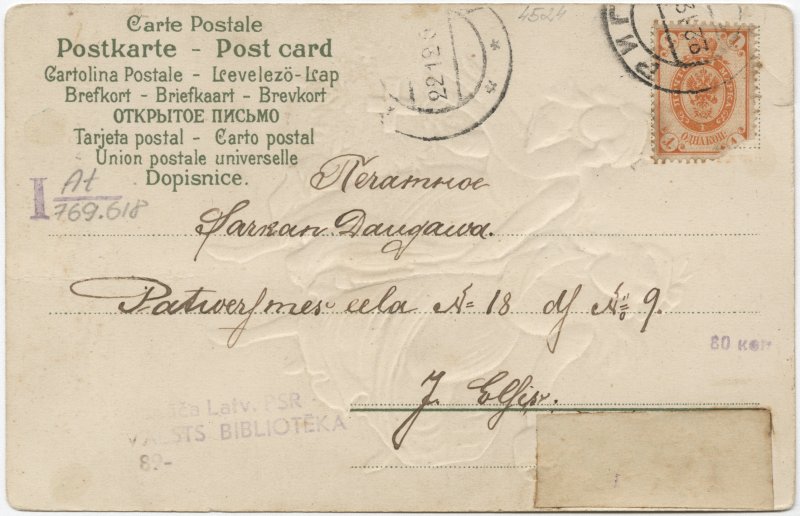 Carte Postale
Postkarte - Post card
Cartolina Postale - Levelezö-Lap
Brefkort - Briefkaart - Brevkort
ОТКРЫТОЕ ПИСЬМО
Tarjeta postal - Carto postal
Union postale universelle
Dopisnice.
4524
22 12 9
РИГ
1 1
ОДНА КОП.
I At
769.618
Печатное
Sarkan Daugawa.
Patwersmes eela № 18 dz № 9.
J. Elsis.
80 коп
Latv. PSR
VALSTS BIBLIOTĒKA
89-